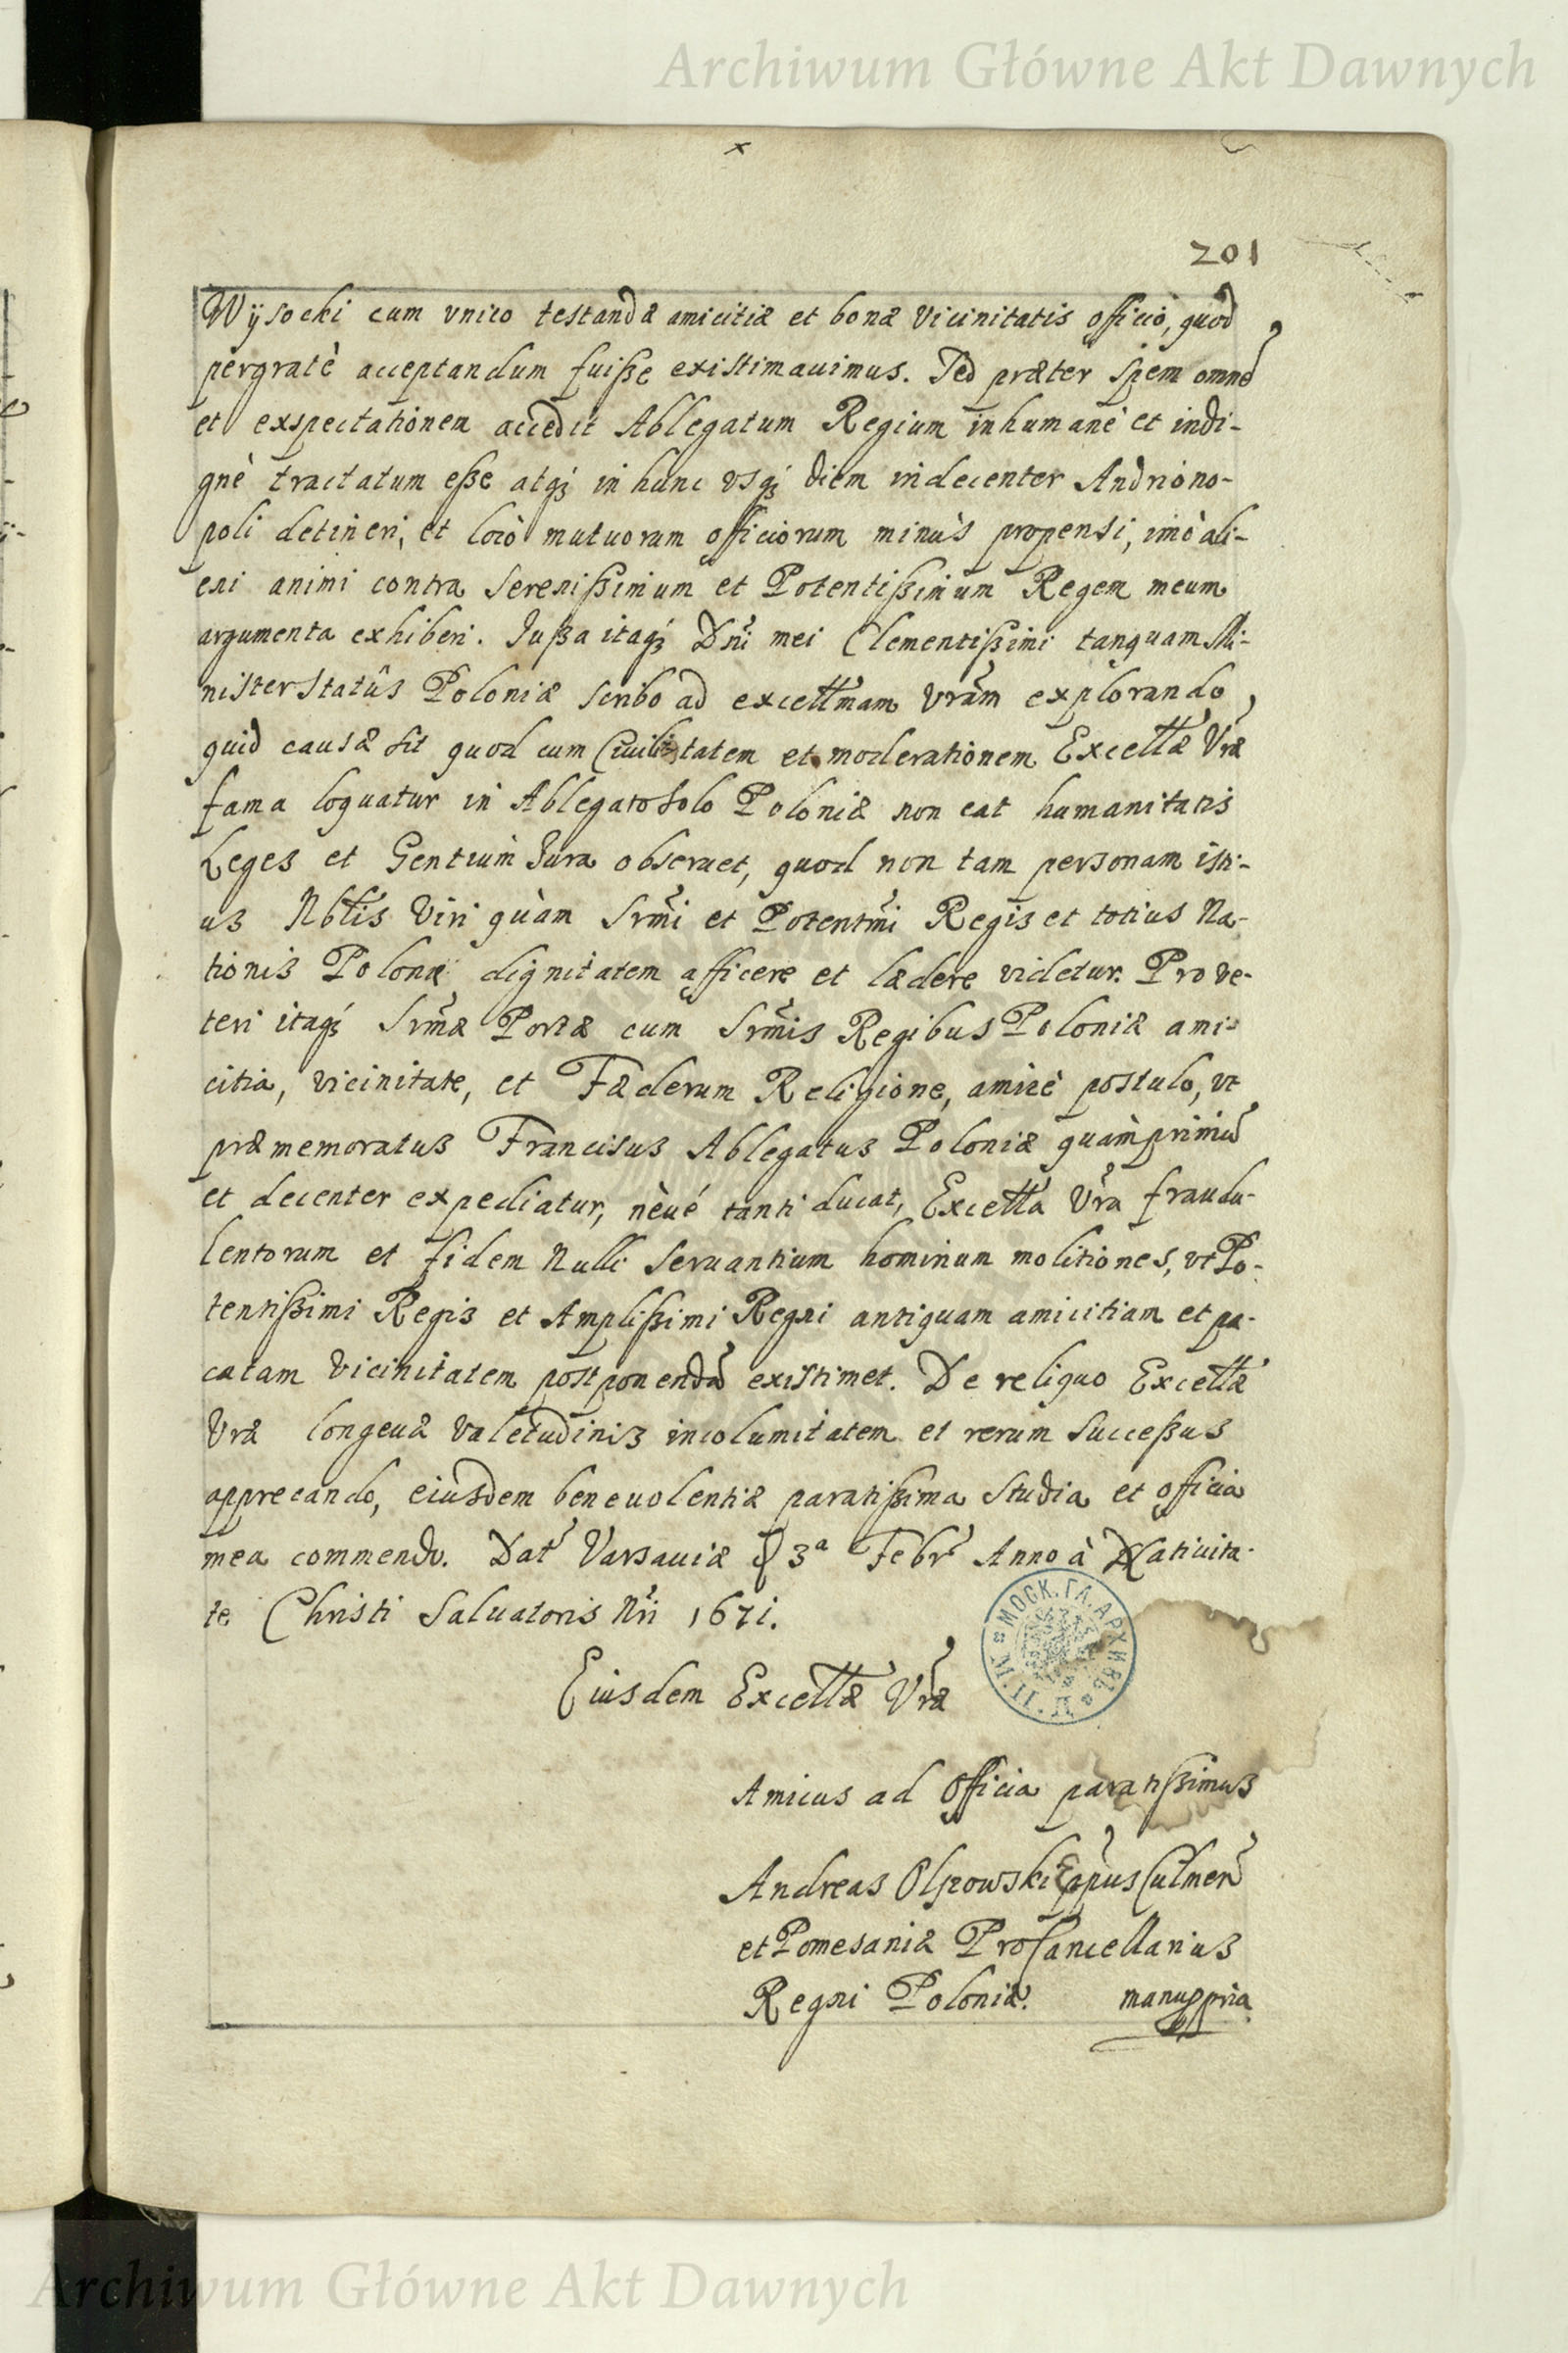 Archiwum Główne Akt Dawnych
201
Wysocki cum vnico testandæ amicitiæ et bonæ Vicinitatis officiò, quod
pergratè acceptandum fuiße existimauimus. Sed præter Spem omnē
et exspectationem accedit Ablegatum Regium inhumanè et indi-
gnè tractatum eße atq; in hunc vsq; diem indecenter Andriono-
poli detineri, et locò mutuorum officiorum minùs propensi, imò ali-
eni animi contra Serenißimum et Potentißimum Regem meum
argumenta exhiberi. Jußa itaq; Dni mei Clementißimi tanquam Mi-
nister Statûs Poloniæ scribo ad excellmam vram explorando,
quid causæ sit quod cum Ciuilitatem et moderationem Excellæ Vræ
fama loquatur in Ablegato solo Poloniæ non eat humanitatis
Leges et Gentium Jura obseruet, quod non tam personam isti-
us Nblis Viri quàm Srmi et Potentmi Regis et totius Na-
tionis Polonæ dignitatem afficere et lædere videtur. Pro ve-
teri itaq; Srmæ Portæ cum Srmis Regibus Poloniæ ami-
citia, vicinitate, et Fæderum Religione, amicè postulo, vt
præmemoratus Franciscus Ablegatus Poloniæ quàmprimū
et decenter expediatur, nèué tanti ducat, Excellа Vra fraudu-
lentorum et fidem Nulli Seruantium hominum molitiones, vt Po-
tentißimi Regis et Amplißimi Regni antiquam amicitiam et pa-
catam Vicinitatem postponendā existimet. De reliquo Excellæ
Vræ longeuæ Valetudinis incolumitatem et rerum Succeßus
apprecando, eiusdem beneuolentiæ paratißima Studia et officia
mea commendo. Dat Varsauiæ 3ª Febr Anno à Natiuita-
te Christi Saluatoris Nri 1671.
Eiusdem Excellæ Vræ
МОСК. ГЛ. АРХИВЪ М. И. Д.
Amicus ad Officia paratißimus
Andreas Olszowski Eppus Culmen
et Pomesaniæ ProCancellarius
Regni Poloniæ. manu ppria
Archiwum Główne Akt Dawnych